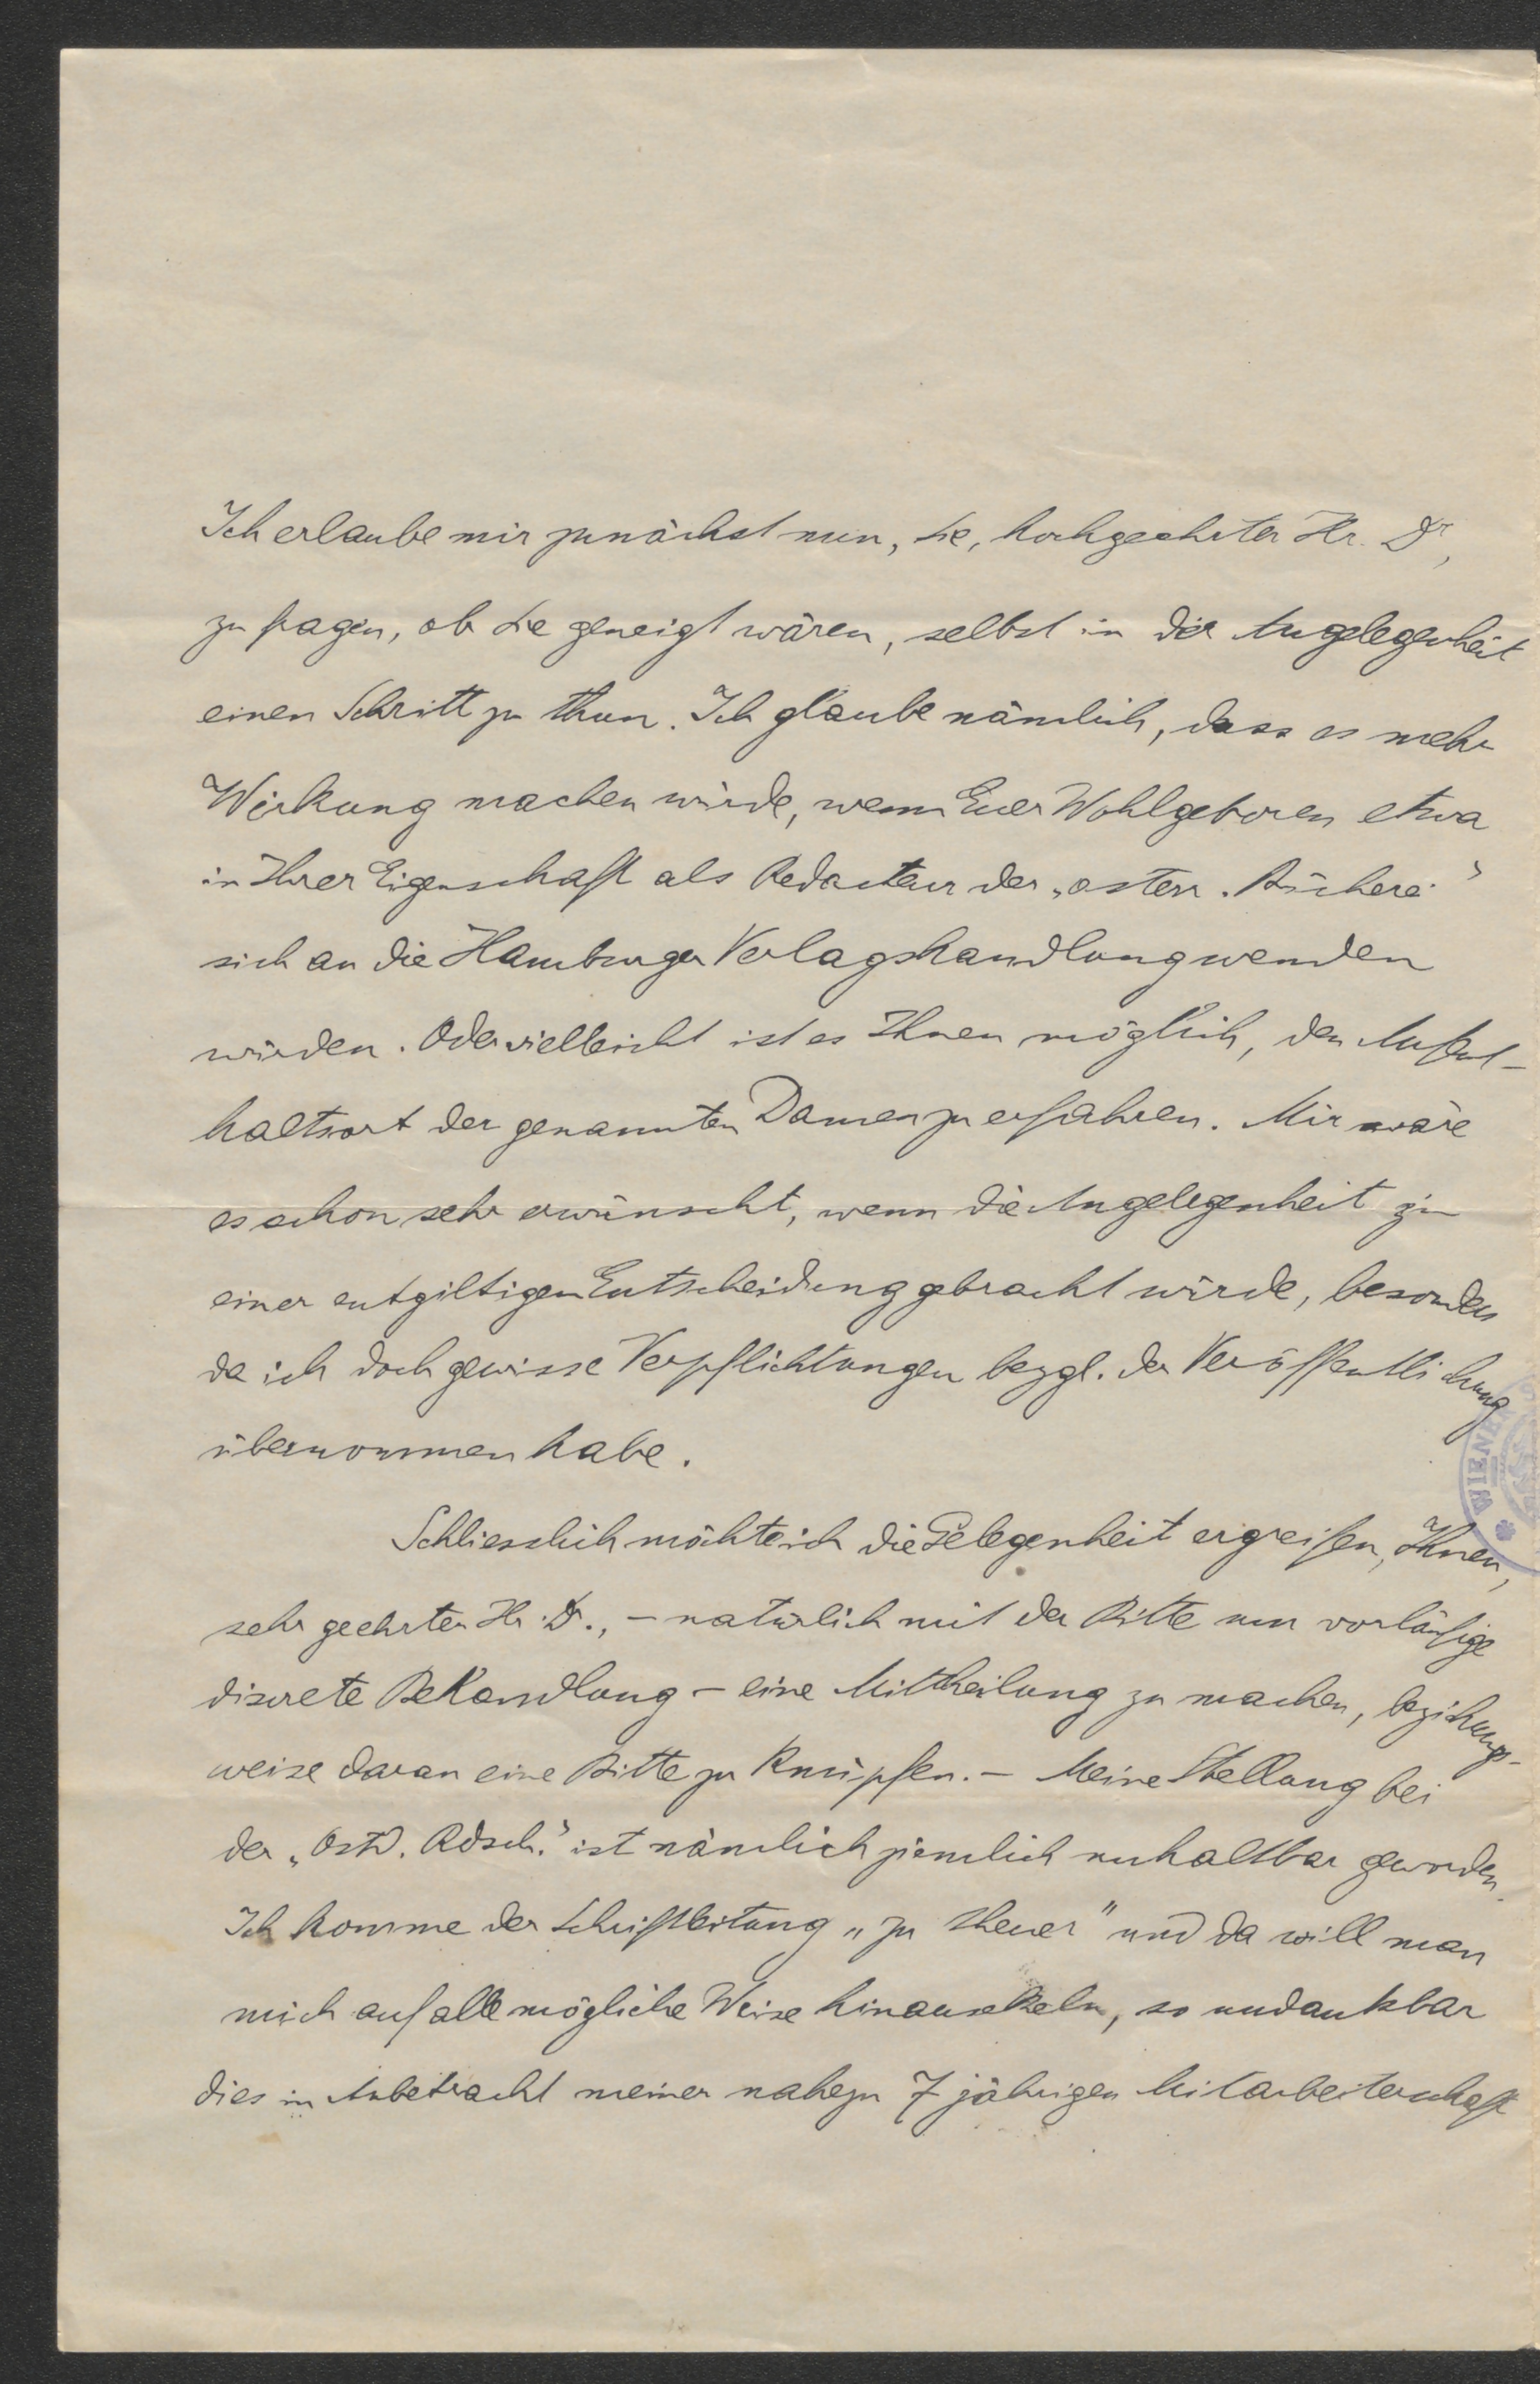 Ich erlaube mir zunächst nun, Sie, hochgeehrter Hr. Dr,
zu fragen, ob Sie geneigt wären, selbst in der Angelegenheit
einen Schritt zu thun. Ich glaube nämlich, dass es mehr
Wirkung machen würde, wenn Euer Wohlgeboren etwa
in Ihrer Eigenschaft als Redacteur der „österr. Bücherei“
sich an die Hamburger Verlagshandlung wenden
würden. Oder vielleicht ist es Ihnen möglich, den Aufent-
haltsort der genannten Damen zu erfahren. Mir wäre
es schon sehr erwünscht, wenn die Angelegenheit zu
einer entgiltigen Entscheidung gebracht würde, besonders
da ich doch gewisse Verpflichtungen bezgl. der Veröffentlichung
übernommen habe.
Schliesslich möchte ich die Gelegenheit ergreifen, Ihnen,
sehr geehrter Hr. Dr., – natürlich mit der Bitte um vorläufige
discrete Behandlung – eine Mittheilung zu machen, beziehungs-
weise daran eine Bitte zu knüpfen. – Meine Stellung bei
der „Ostd. Rdsch.“ ist nämlich ziemlich unhaltbar geworden.
Ich komme der Schriftleitung „zu theuer“ und da will man
mich auf alle mögliche Weise hinausekeln, so undankbar
dies in Anbetracht meiner nahezu 7 jährigen Mitarbeiterschaft
WIENER